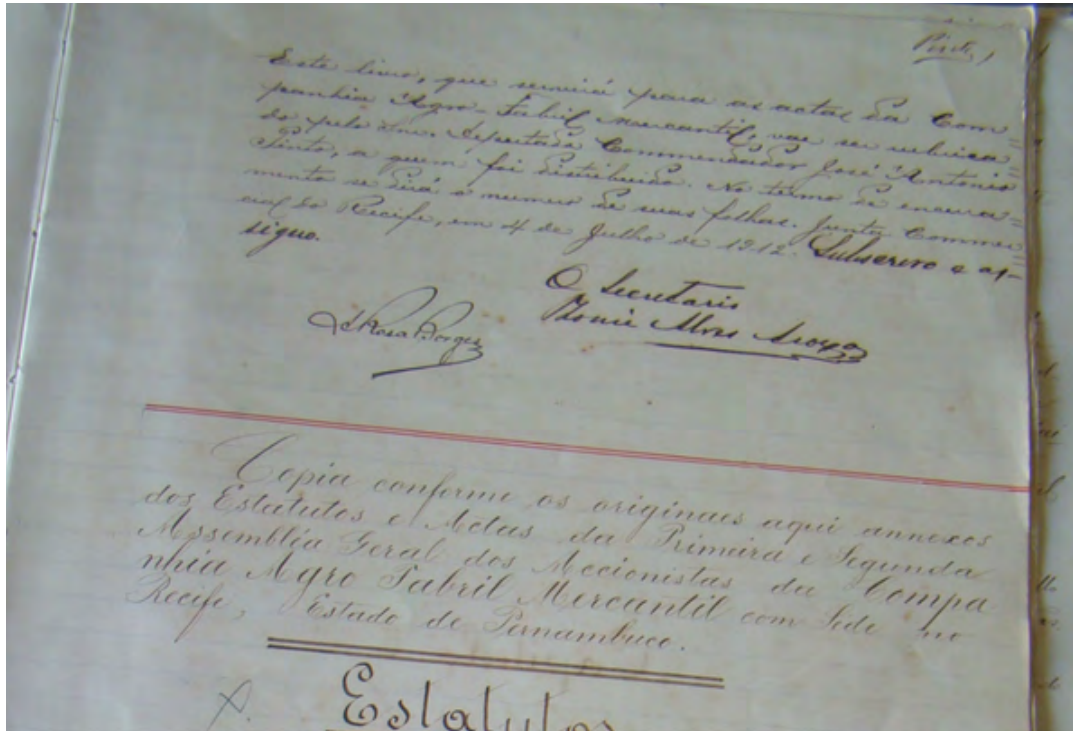 Pinto
Este livro, que servirá para as actas da Com
panhia Agro-Fabril Mercantil, vae ser rubrica=
do pelo Snr. Deputado Commendador José Antonio
Pinto, a quem foi distribuido. No termo de encerra=
mento se dirá o numero de suas folhas. Junta Commer
cial do Recife, em 4 de Julho de 1912. Subscrevo e as-
signo.
O Secretario
Copia conforme os originaes aqui annexos
dos Estatutos e Actas da Primeira e Segunda
Assemblia Geral dos Accionistas da Compa
nhia Agro Fabril Mercantil com Sede no
Recife, Estado de Pernambuco.
Estatutos